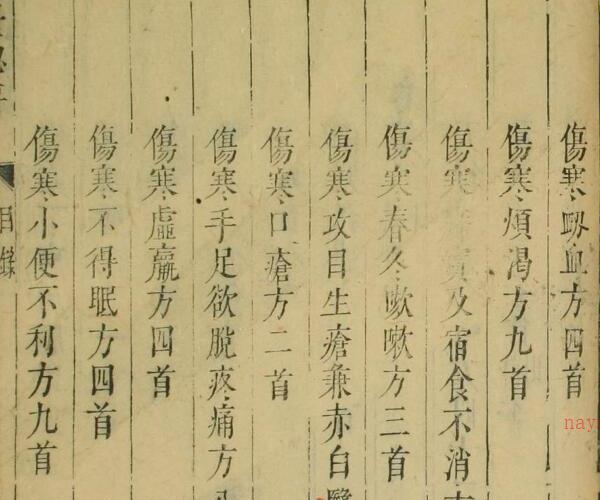 傷寒衂血方四首
傷寒煩渴方九首
傷寒實及宿食不消
傷寒春冬嗽嗽方三首
傷寒攻目生瘡兼赤白翳
傷寒口瘡方二首
傷寒手足欲脫疼痛方
傷寒虛羸方四首
傷寒不得眠方四首
傷寒小便不利方九首
目錄
nay